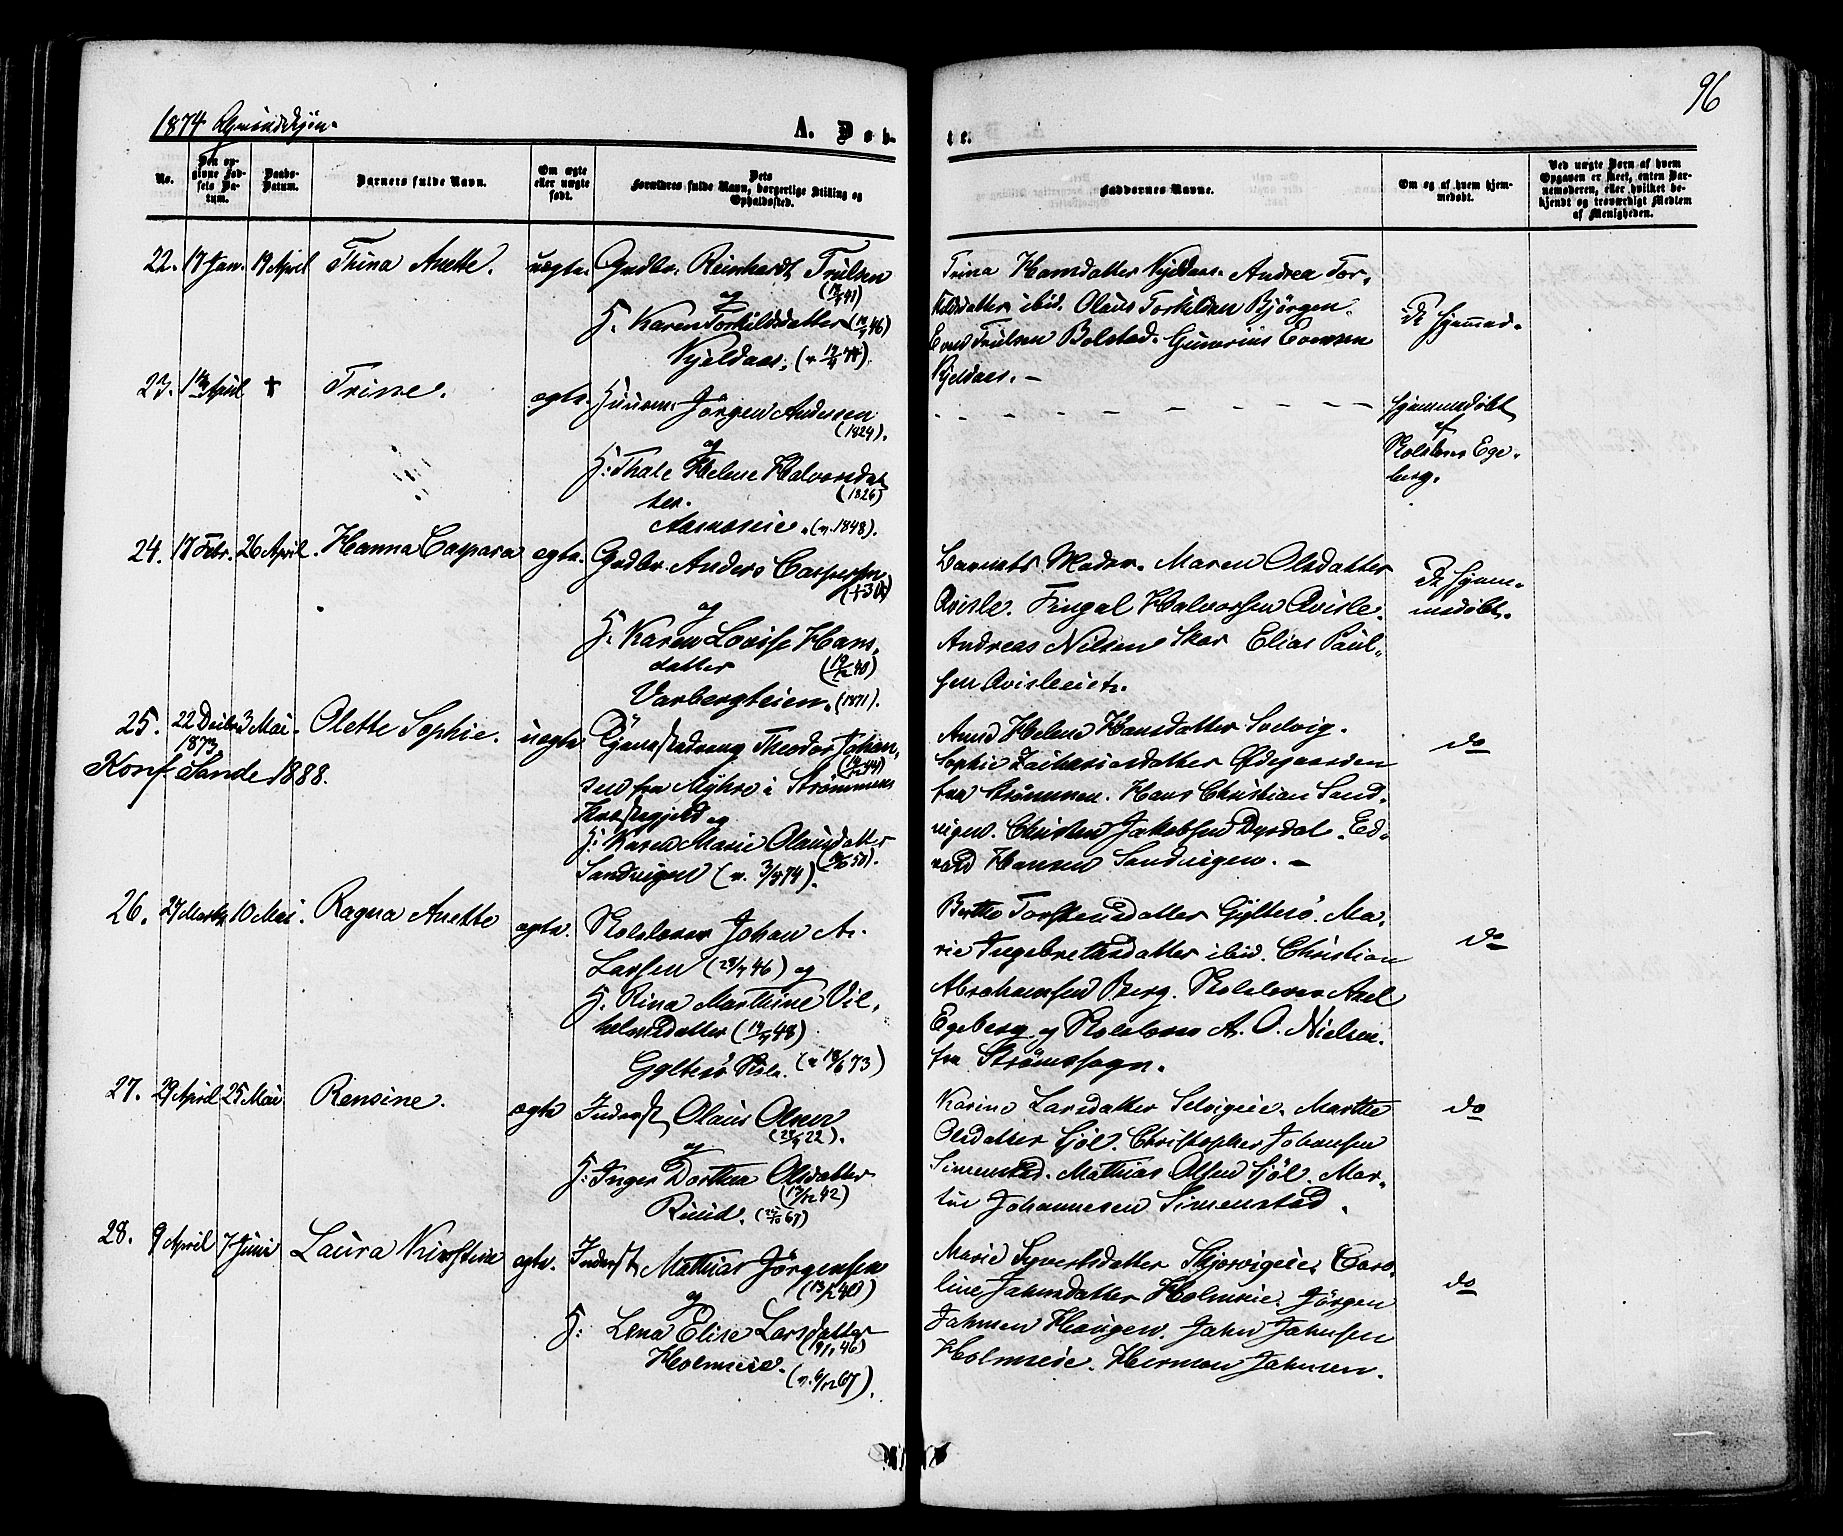 96
1874
A. Døb-
te.
No.
Den op-
givne Fød-
sels Da-
tum.
Daabs-
Datum.
Barnets fulde Navn.
Om ægte
eller uægte
født.
Forældres fulde Navn, borgerlige Stilling og
Opholdssted.
Faddernes Navne.
Om og af hvem hjem-
medøbt.
Ved uægte Børn af hvem
Opgaven er skeet, enten Bar-
nemoderen, eller hvilket be-
kjendt og troværdigt Medlem
af Menigheden.
22. 17 Jan. 19 April Thina Anette. uægte. Gudbr. Reinhardt Trulsen
og
H. Karen Torkildsdatter
Kjeldaas.
Trina Hansdatter Kjeldaas. Andrea Tor-
kildsdatter ibid. Olaus Torkildsen Bjørgen.
Trulsen Bolstad. Gunerius Evensen
Kjeldaas. —
Ei hjemmed.
23. April + Trine. ægte. Huusm. Jørgen Andersen
(1824).
og
H: Thale Helene Halvorsdat
ter. (1826)
(v. 1848).
hjemmedøbt
af
Kolsloser Ege-
berg.
24. 17 Febr. 26 April. Hanna Caspara ægte. Gudbr Anders Caspersen
og
H. Karen Lovise Hans-
datter
Varbergteien. (1871).
Barnets Moder. Maren Olsdatter
Qvisle. Fingal Halvorsen Qvisle.
Andreas Nilsen Skar Elias Paul-
sen Qvisleeiet.
Ei hjem-
medøbt.
25. 22 Decbr 3 Mai. Olette Sophie. uægte
1873
Konf. Sande 1888.
Theodor Johan-
sen fra Myhre i Strømmens
Præstegjeld og
H: Karen Marie Olausdatter
Sandvigen (v. 3/5 74).
Anne Helene Hansdatter Solvig.
Sophie Zachariasdatter Ødegaarden
fra Strømmen. Hans Christian Sand-
vigen. Christen Jakobsen Dysdal. Ed-
vard Hansen Sandvigen. —
do
26. 27 Marts 10 Mai. Ragna Anette ægte. Johan A.
Larsen (28/7 46) og
H. Rina Marthine Vil-
helmsdatter
(v 18/6 73)
Berthe Torstensdatter Gyltesø. Ma-
rie Ingebretsdatter ibid. Christian
Abrahamsen Berg. Axel
Egeberg og A. O. Nielsen.
fra Strømssogn.
do
27. 29 April 25 Mai Rensine. ægte Inderst Olaus Olsen
og
H: Inger Dorthea Olsdatter
(17/12 42)
Ruud.
Karine Larsdatter Selvigeie. Marthe
Olsdatter Fjöl. Christopher Johansen
Simenstad. Mathias Olsen Fjöl. Mar-
tin Johannesen Simenstad.
do
28. 9 April 7 Juni Laura Kirstine ægte. Inderst Mathias Jørgensen
og
H: Lena Elise Larsdatter
(19/1 46)
Holmeie.
(v. 6/12 67).
Marie Syvertsdatter Skjervigeie. Caro-
line Jahnsdatter Holmseie. Jørgen
Jahnsen Haugen. Jahn Jahnsen
Holmseie. Herman Jahnsen.
do